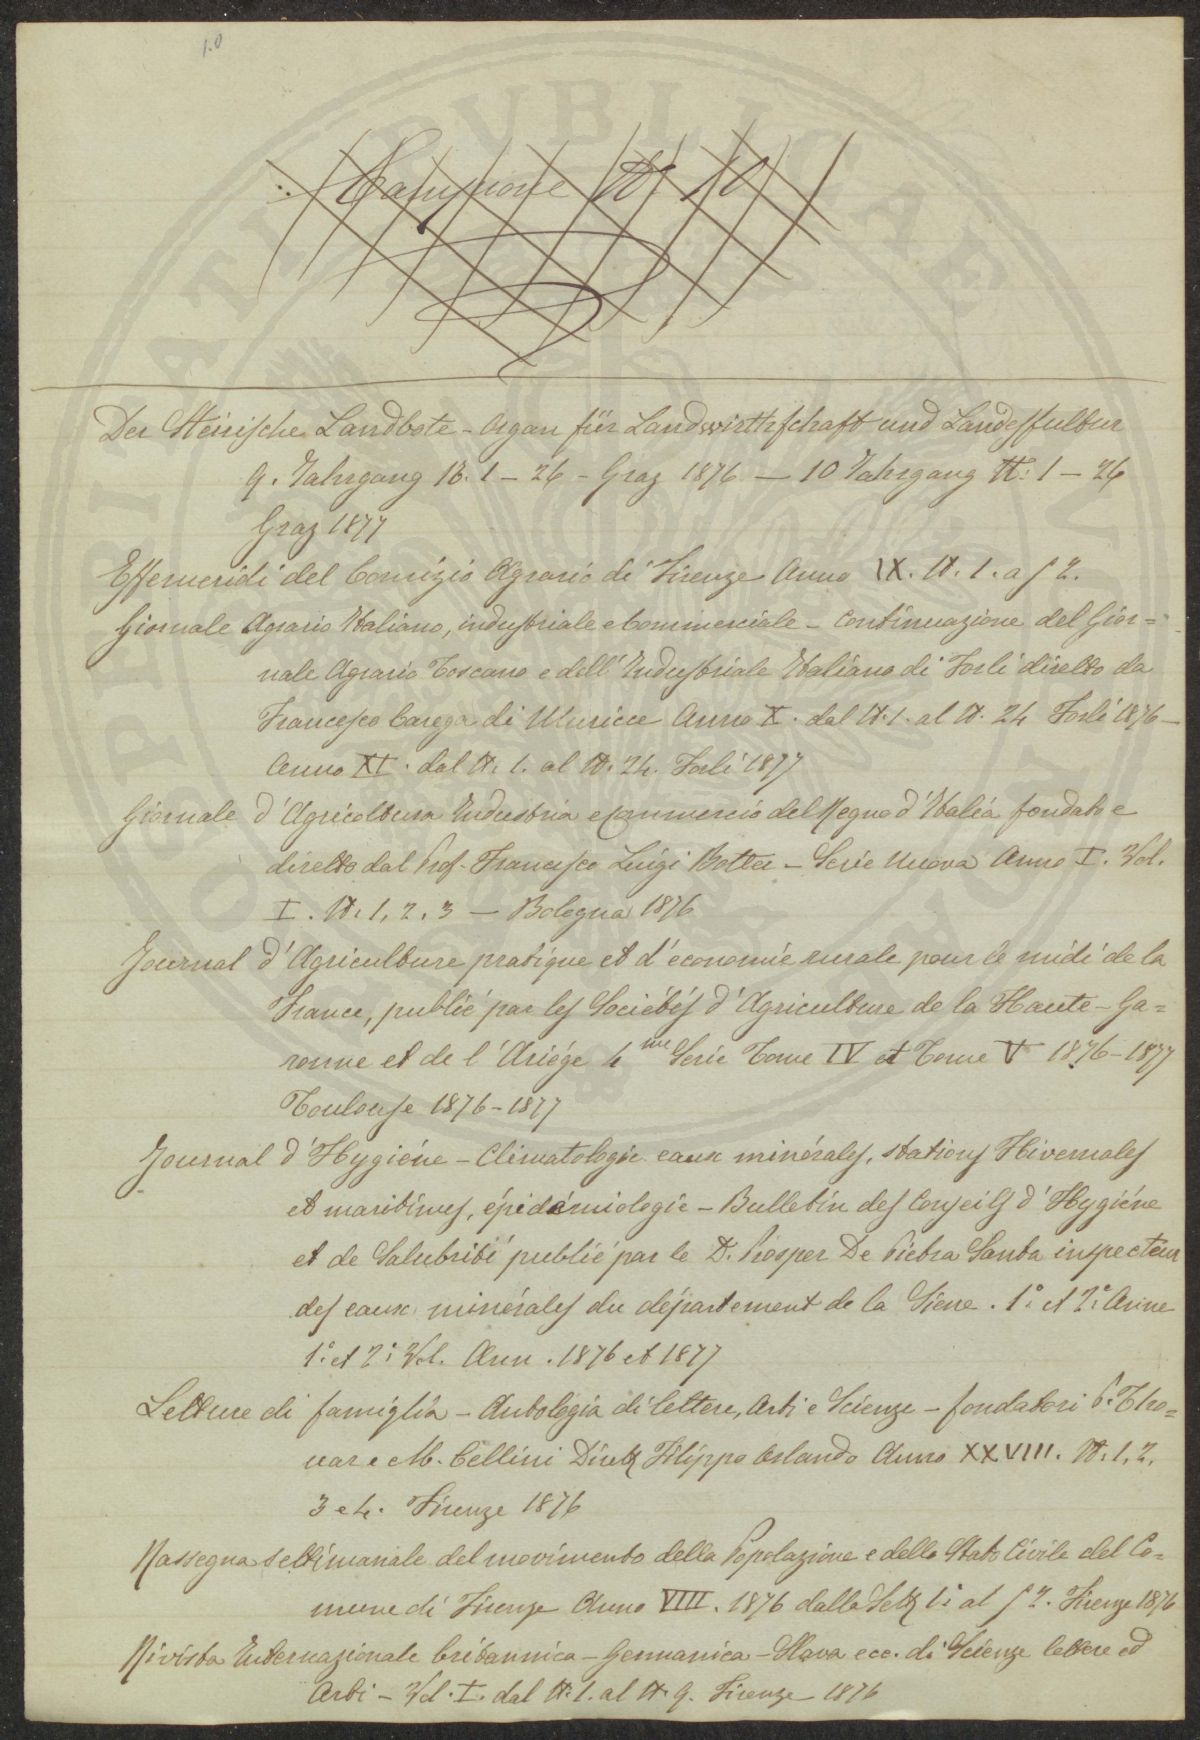 10
Campione N. 10
Der Steirische Landbote - Organ für Landwirthschaft und Landeskultur
9. Jahrgang N. 1 - 26 - Graz 1876 — 10 Jahrgang N: 1 - 26
Graz 1877
Effemeridi del Comizio Agrario di Firenze Anno IX. N. 1. a 52.
Giornale Agrario Italiano, industriale e Commerciale - Continuazione del Gior=
nale Agrario Toscano e dell' Industriale Italiano di Forlì diretto da
Francesco Carega di Muricce Anno X. dal N. 1. al N. 24 Forlì 1876 -
Anno XI. dal N. 1. al N. 24. Forlì 1877
Giornale d' Agricoltura Industria e Commercio del Regno d' Italia fondato e
diretto dal Prof. Francesco Luigi Botter - Serie Nuova Anno I. Vol.
I. N. 1, 2, 3 — Bologna 1876
Journal d' Agriculture pratique et d' économie rurale pour le midi de la
France, publié par les Sociétés d' Agriculture de la Haute - Ga=
ronne et de l' Ariége 4 me Serie Tome IV et Tome V 1876 - 1877
Toulouse 1876 - 1877
Journal d' Hygiéne - Climatologie eaux minérales, stations Hivernales
et maritimes, épidémiologie - Bulletin des Conseils d' Hygiéne
et de Salubrité publié par le D. Prosper De Pietra Santa inspecteur
des eaux minérales du département de la Siene. 1° et 2° Anne
1° et 2° Vol. Ann. 1876 et 1877
Letture di famiglia - Antologia di lettere, Arti e Scienze - fondatori P. Tho=
uar e M. Cellini Dirett. Filippo Orlando Anno XXVIII. N. 1, 2,
3 e 4. Firenze 1876
Rassegna settimanale del movimento della Popolazione e dello Stato Civile del Co=
mune di Firenze Anno VIII. 1876 dalla Sett. 1° al 52. Firenze 1876
Rivista Internazionale britannica - Germanica - Slava ecc. di Scienze lettere ed
Arti - Vol. I. dal N. 1. al N. 9. Firenze 1876